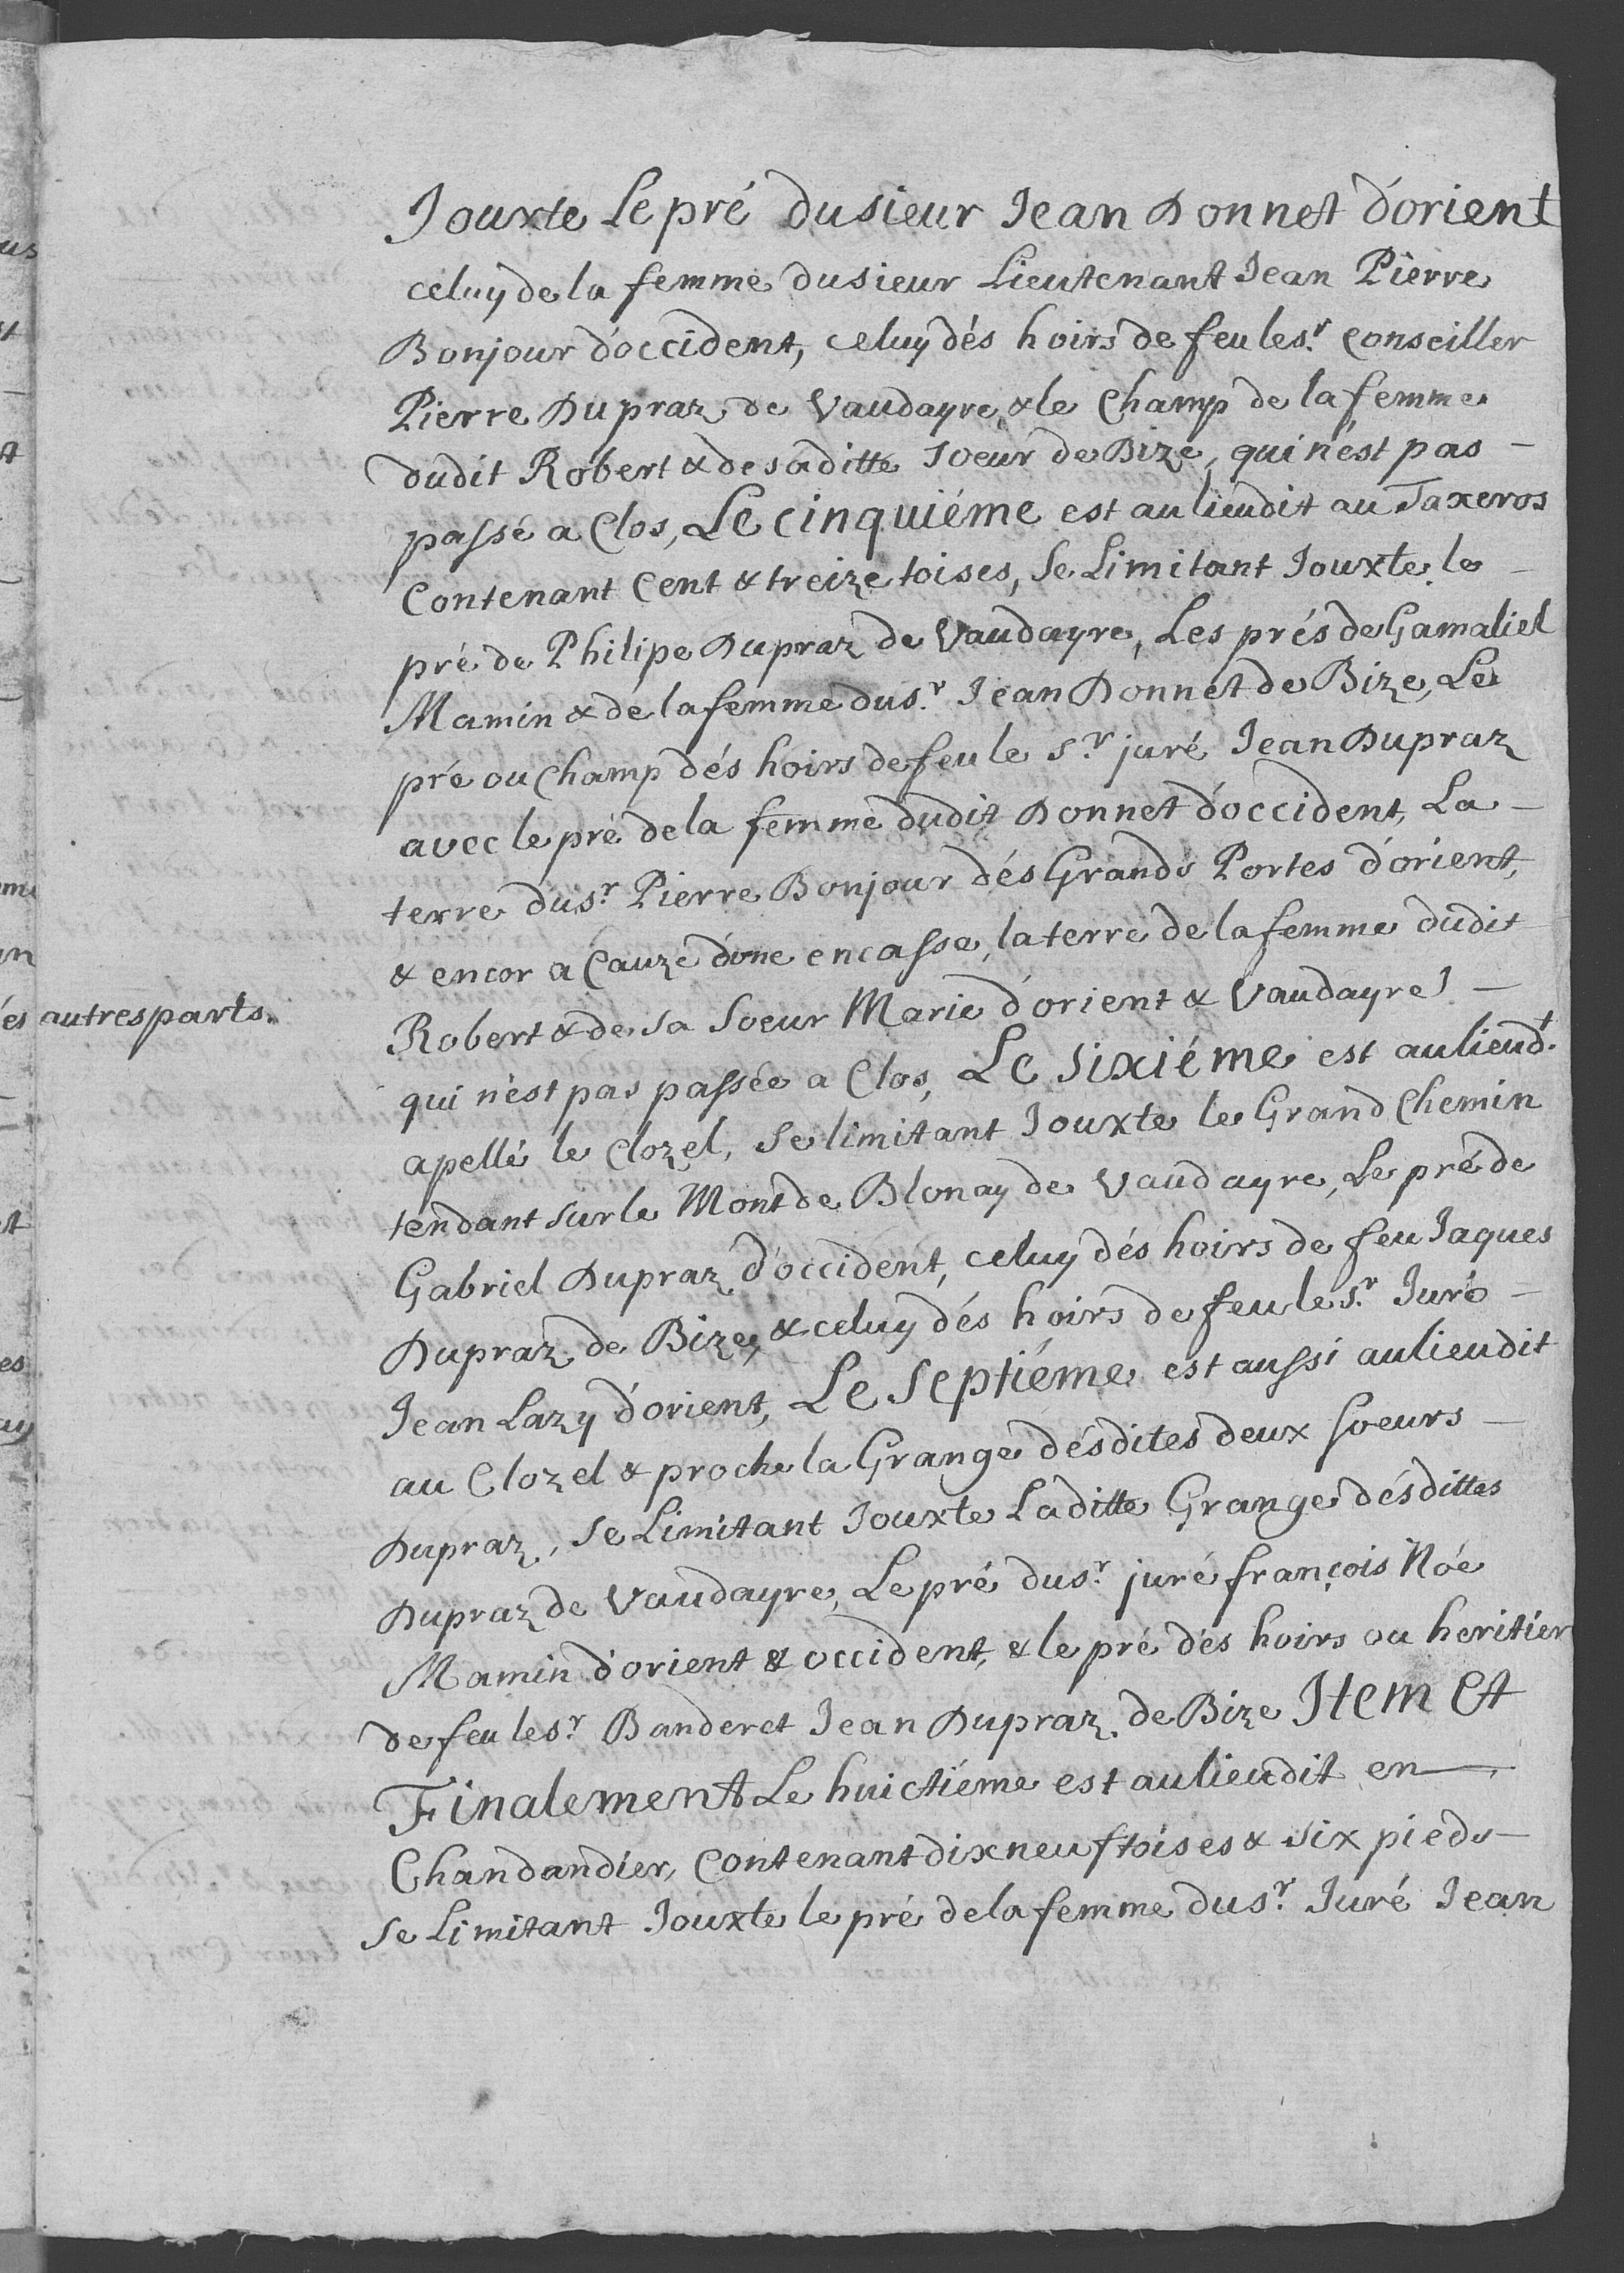 Jouxte Le pré du sieur Jean Donnet d'orient
celuy de la femme du sieur Lieutenant Jean Pierre
Bonjour d'occident, celuy dés hoirs de feu le s.r Conseiller
Pierre Dupraz de Vaudayre, & le Champ de la femme
dudit Robert & de saditte soeur de Bize, qui n'est pas –
passé a Clos, Le cinquiéme est au lieudit au Taxeros
Contenant Cent & treize toises, Se Limitant Jouxte le –
pré de Philipe Dupraz de Vaudayre, Les prés de Gamaliel
Mamin & de la femme du s.r Jean Donnet de Bize, Le
pré ou Champ dés hoirs de feu le s.r juré Jean Dupraz
avec le pré de la femme dudit Donnet d'occident, La –
terre du s.r Pierre Bonjour dés Grands Portes d'orient,
& encor a Cauze d'une encasse, la terre de la femme dudit
Robert & de sa Soeur Marie d'orient & Vaudayre –
autres parts.
qui n'est pas passée a Clos, Le sixiéme est au lieud.t
apellé le Clozel, se limitant Jouxte le Grand Chemin
tendant sur le Mont de Blonay de Vaudayre, Le pré de
Gabriel Dupraz d'occident, celuy dés hoirs de feu Jaques
Dupraz de Bize, & celuy dés hoirs de feu le s.r Juré –
Jean Lazy d'orient, Le Septiéme est aussi au lieudit
au Clozel & proche la Grange désdites deux soeurs –
Dupraz, se Limitant Jouxte Laditte Grange désdittes
Dupraz de Vaudayre, Le pré du s.r juré françois Nóé
Mamin d'orient & occident, & le pré dés hoirs ou heritier
de feu le s.r Banderet Jean Dupraz de Bize Item Et
Finalement Le huictiéme est au lieudit en —
Chandandier, Contenant dix neuf toises & six pieds –
se Limitant Jouxte le pré de la femme du s.r Juré Jean